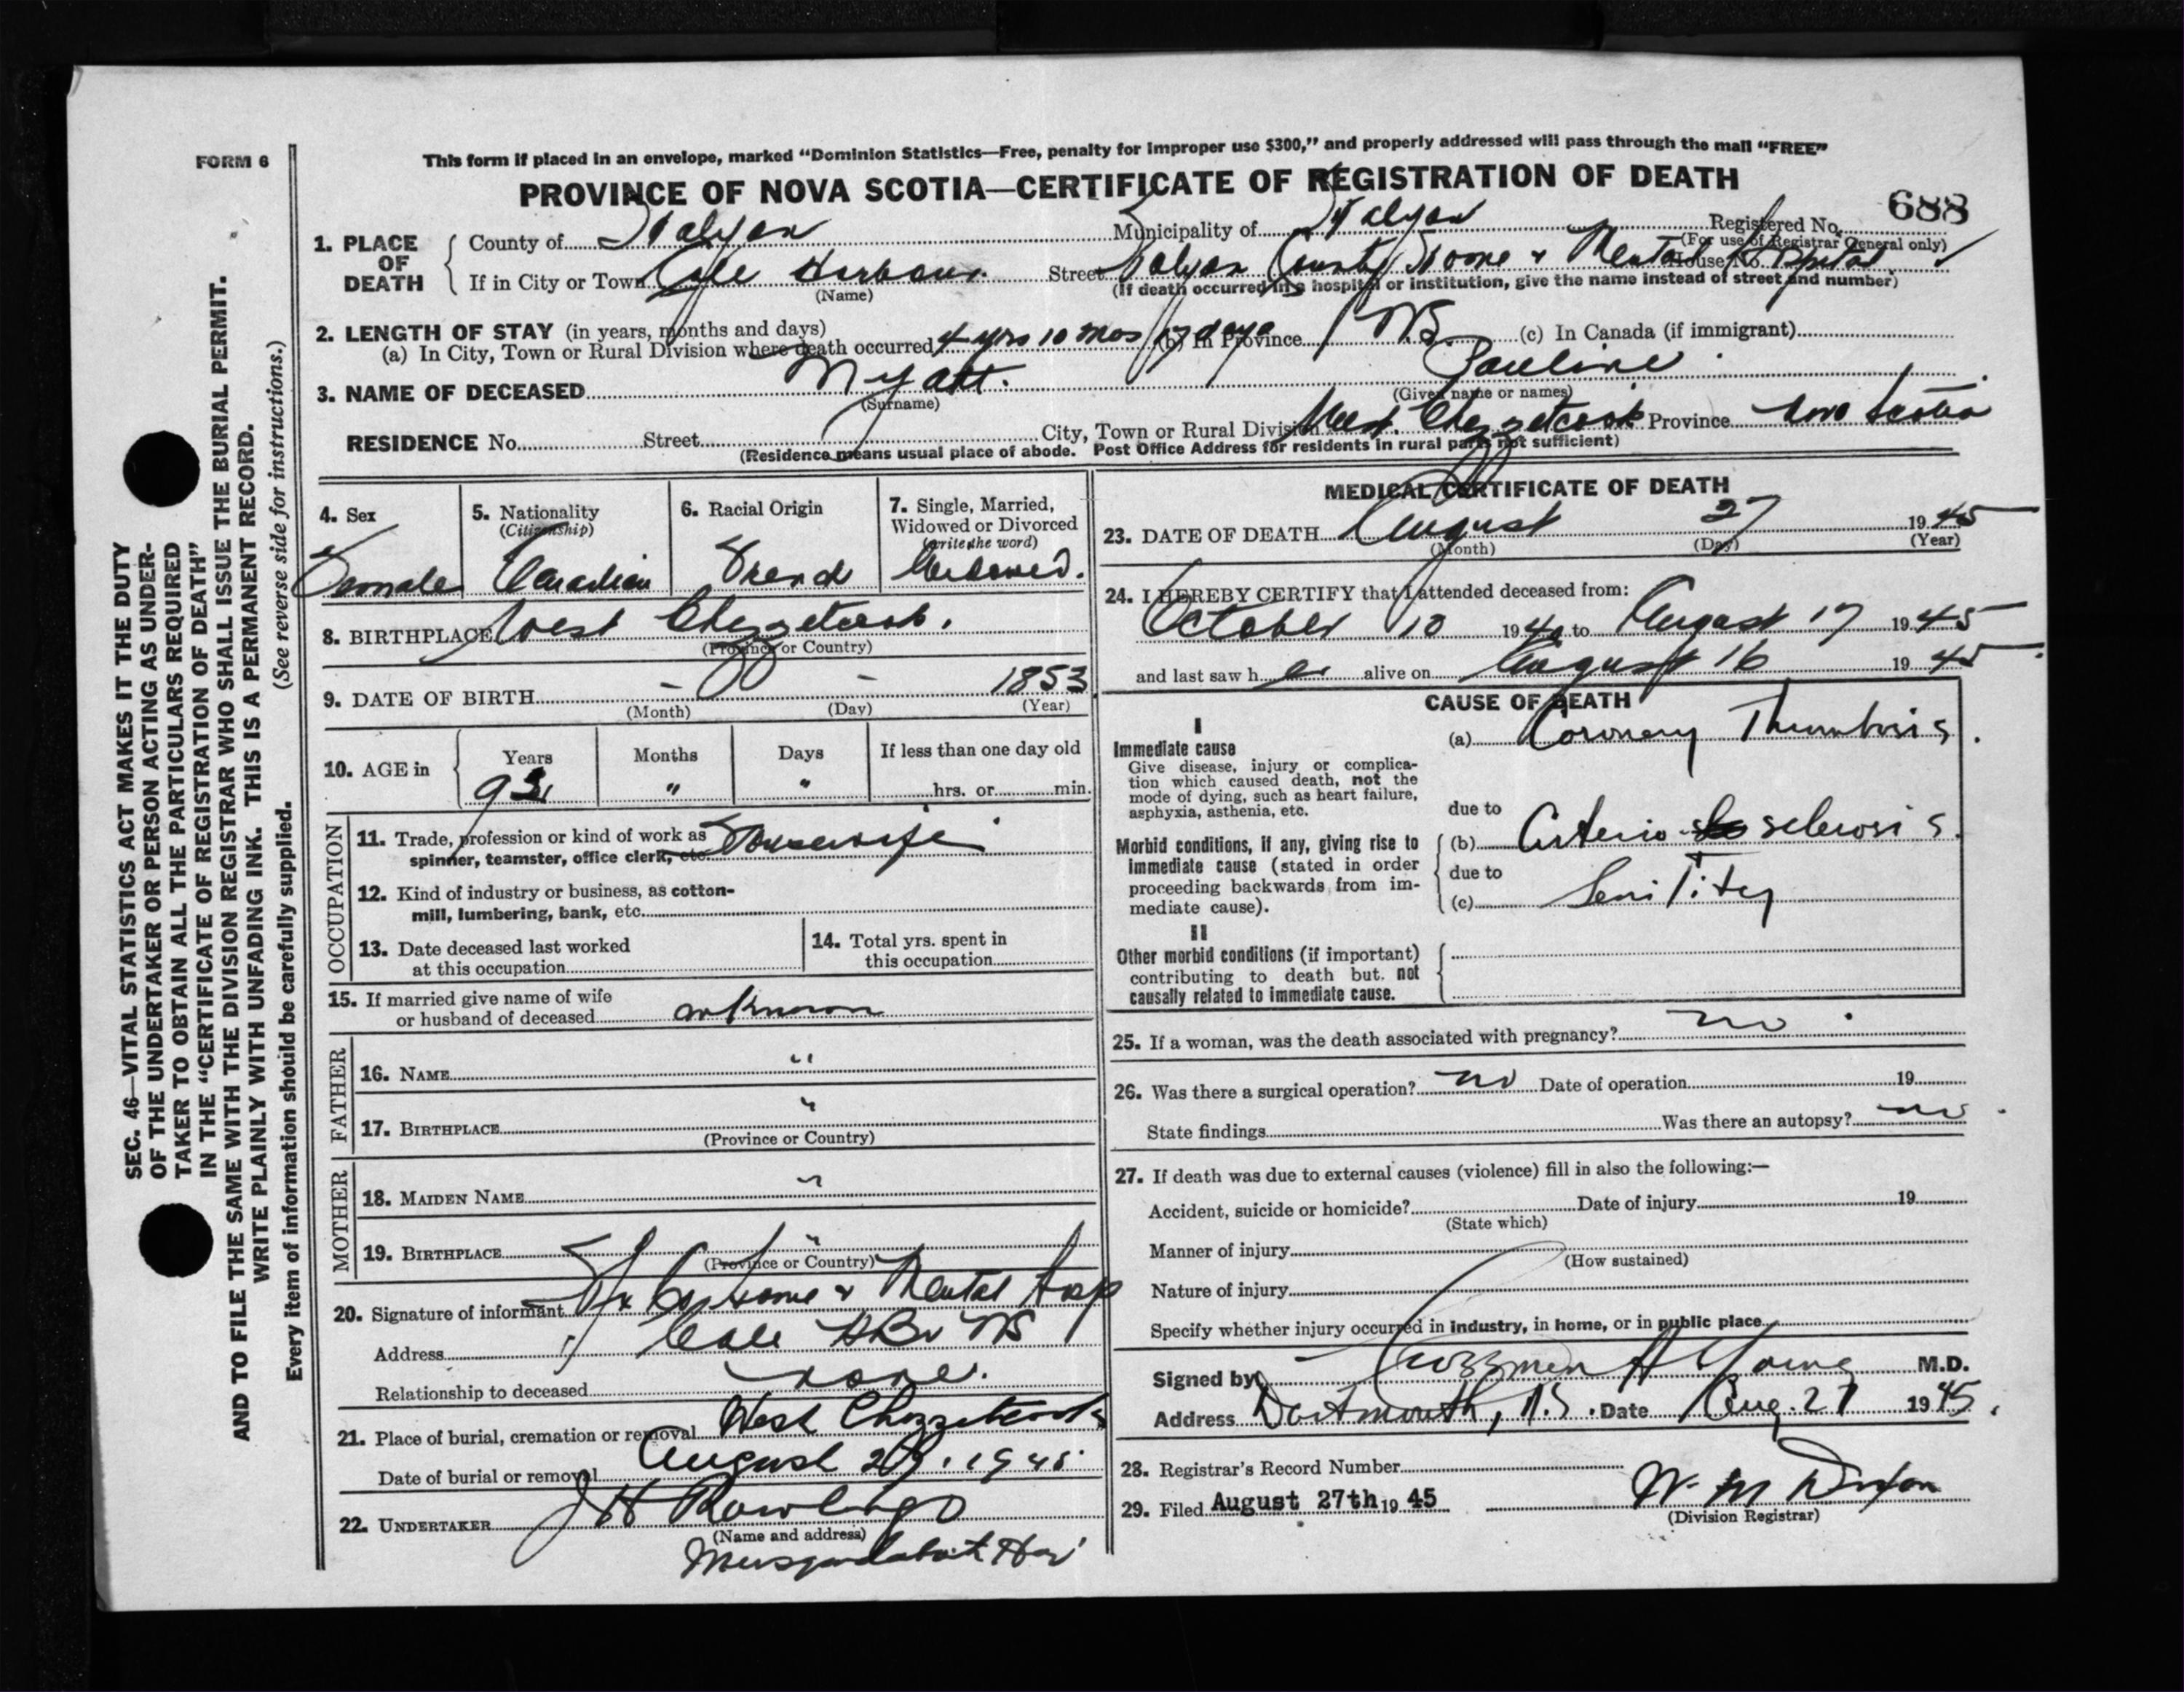 FORM 6
This form if placed in an envelope, marked "Dominion Statistics—Free, penalty for improper use $300," and properly addressed will pass through the mail "FREE"
PROVINCE OF NOVA SCOTIA—CERTIFICATE OF REGISTRATION OF DEATH
688
1. PLACE OF DEATH
County of Halifax Municipality of Halifax Registered No.
(For use of Registrar General only)
If in City or Town Cole Harbour. Street Halifax County Home & Mental Hospital House No.
(Name) (If death occurred in a hospital or institution, give the name instead of street and number)
2. LENGTH OF STAY (in years, months and days)
(a) In City, Town or Rural Division where death occurred 4 yrs 10 mos 17 days (b) In Province N.S. (c) In Canada (if immigrant)
3. NAME OF DECEASED Myatt. Pauline
(Surname) (Given name or names)
RESIDENCE No. Street City, Town or Rural Division West Chezzetcook Province Nova Scotia
(Residence means usual place of abode. Post Office Address for residents in rural parts not sufficient)
4. Sex
Female
5. Nationality
(Citizenship)
Canadian
6. Racial Origin
French
7. Single, Married,
Widowed or Divorced
(write the word)
Widowed.
8. BIRTHPLACE West Chezzetcook.
(Province or Country)
9. DATE OF BIRTH - - 1853
(Month) (Day) (Year)
10. AGE in
Years Months Days If less than one day old
92 " " hrs. or min.
OCCUPATION
11. Trade, profession or kind of work as
spinner, teamster, office clerk, etc. Housewife
12. Kind of industry or business, as cotton-
mill, lumbering, bank, etc.
13. Date deceased last worked
at this occupation
14. Total yrs. spent in
this occupation
15. If married give name of wife
or husband of deceased unknown
FATHER
16. NAME "
17. BIRTHPLACE "
(Province or Country)
MOTHER
18. MAIDEN NAME "
19. BIRTHPLACE "
(Province or Country)
20. Signature of informant Hx Co. Home & Mental Hosp
Address Cole Hbr NS
Relationship to deceased none.
21. Place of burial, cremation or removal West Chezzetcook
Date of burial or removal August 29. 1945
22. UNDERTAKER J H Rowlings
(Name and address)
Musquodoboit Har
MEDICAL CERTIFICATE OF DEATH
23. DATE OF DEATH August 27 1945
(Month) (Day) (Year)
24. I HEREBY CERTIFY that I attended deceased from:
October 10 1940 to August 17 1945
and last saw her alive on August 16 1945
CAUSE OF DEATH
I
Immediate cause
Give disease, injury or complica-
tion which caused death, not the
mode of dying, such as heart failure,
asphyxia, asthenia, etc.
(a) Coronary Thrombosis.
due to
Morbid conditions, if any, giving rise to
immediate cause (stated in order
proceeding backwards from im-
mediate cause).
(b) Arterio sclerosis.
due to
(c) Senility
II
Other morbid conditions (if important)
contributing to death but not
causally related to immediate cause.
25. If a woman, was the death associated with pregnancy? no
26. Was there a surgical operation? no Date of operation 19
State findings Was there an autopsy? no
27. If death was due to external causes (violence) fill in also the following:—
Accident, suicide or homicide? Date of injury 19
(State which)
Manner of injury
(How sustained)
Nature of injury
Specify whether injury occurred in industry, in home, or in public place
Signed by H Young M.D.
Address Dartmouth, N.S. Date Aug. 27 1945.
28. Registrar's Record Number
29. Filed August 27th 1945 W. M Dixon
(Division Registrar)
SEC. 46—VITAL STATISTICS ACT MAKES IT THE DUTY
OF THE UNDERTAKER OR PERSON ACTING AS UNDER-
TAKER TO OBTAIN ALL THE PARTICULARS REQUIRED
IN THE "CERTIFICATE OF REGISTRATION OF DEATH"
AND TO FILE THE SAME WITH THE DIVISION REGISTRAR WHO SHALL ISSUE THE BURIAL PERMIT.
WRITE PLAINLY WITH UNFADING INK. THIS IS A PERMANENT RECORD.
(See reverse side for instructions.)
Every item of information should be carefully supplied.